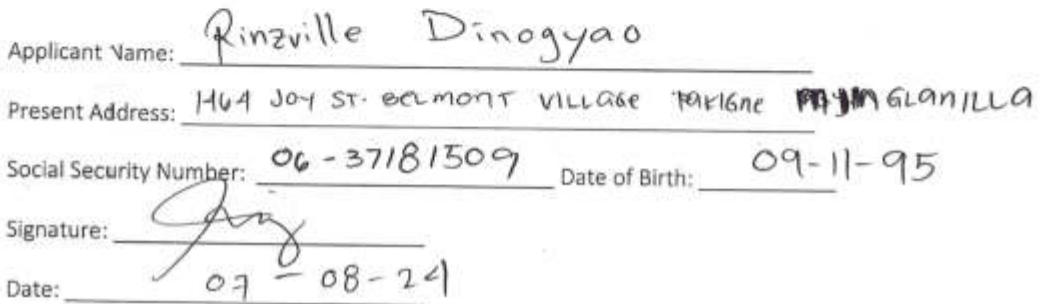 Applicant Name: Rinzville Dinogyao
Present Address: 1464 JOY ST. BELMONT VILLAGE GLANILLA
Social Security Number: 06-37181509 Date of Birth: 09-11-95
Signature:
Date: 07-08-24